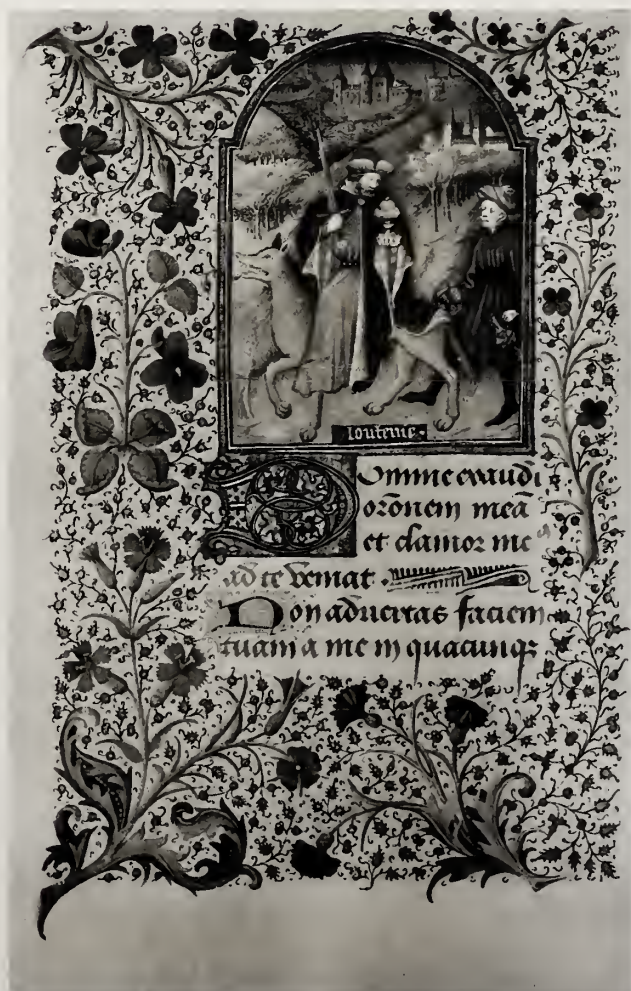 louterne.
Domine exaudi
orōnem meā
et clamor meꝰ
ad te veniat.
Non aduertas faciem
tuam a me in quacunqꝫ